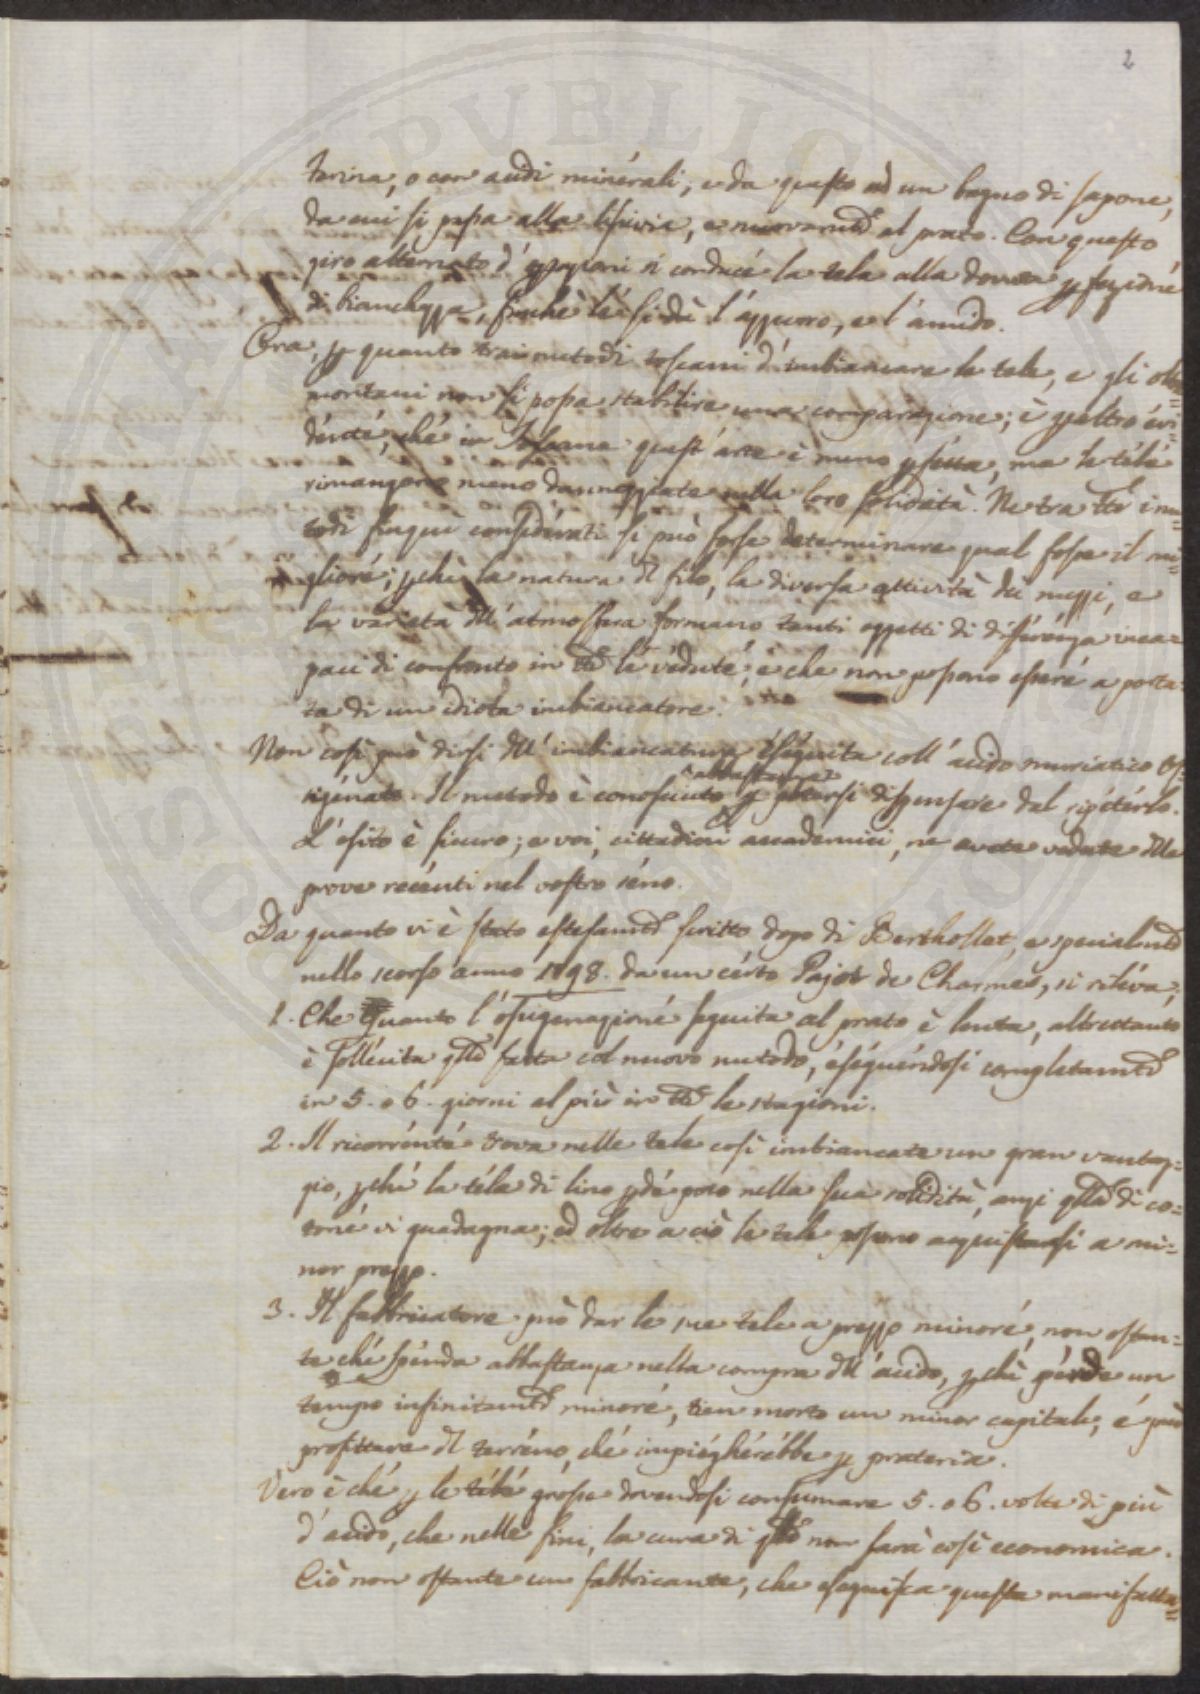 2
terina, o con acidi minerali, e da questo ad un bagno di sapone,
da cui si passa alla lisivia, e nuovam.te al prato. Con questo
giro alternato d'operazioni si conduce la tela alla dovuta pfezione
di bianchezza, finchè le si dà l'azzurro, e l'amido.
Ora, p quanto trai metodi toscani d'imbiancare le tele, e gli oltra=
montani non si possa stabilire una comparazione; è peraltro evi=
dente, che in Toscana quest'arte è meno pfetta, ma le tele
rimangono meno danneggiate nella loro solidità. Ne tra tti i me=
todi finquì considerati si può forse determinare qual fosse il mi=
gliore; pchè la natura del filo, la diversa attività dei mezzi, e
la varietà dell'atmosfera formano tanti oggetti di differenza inca=
paci di confronto in tte le vedute; e che non possono essere a porta=
ta di un idiota imbiancatore.
Non così può dirsi dell'imbiancatura eseguita coll'acido muriatico os=
abbastanza
sigenato. Il metodo è conosciuto p potersi dispensare dal ripeterlo.
L'esito è sicuro; e voi, cittadini accademici, ne avete vedute delle
prove recenti nel vostro seno.
Da quanto vi è stato estesam.te scritto dopo di Berthollet, e specialm.te
nello scorso anno 1798. da un certo Pajot de Charmes, si rileva;
1. Che quanto l'ossigenazione seguita al prato è lenta, altrettanto
è sollecita qlla fatta col nuovo metodo, eseguendosi completam.te
in 5. o 6. giorni al più in tte le stagioni.
2. Il ricorrente trova nelle tele così imbiancate un gran vantag=
gio, pchè la tela di lino pde poco nella sua solidità, anzi qlla di co=
tone vi guadagna; ed oltre a ciò le tele possono acquistarsi a mi=
nor prezzo.
3. Il fabbricatore può dar le sue tele a prezzo minore, non ostan=
te che spenda abbastanza nella compra dell'acido, pchè perde un
tempo infinitam.te minore, tien morto un minor capitale, e può
profittare del terreno, che impiegherebbe p prateria.
Vero è che p le tele grosse dovendosi consumare 5. o 6. volte di più
d'acido, che nelle fini, la cura di qlle non sarà così economica.
Ciò non ostante un fabbricante, che eseguisca questa manifattu=